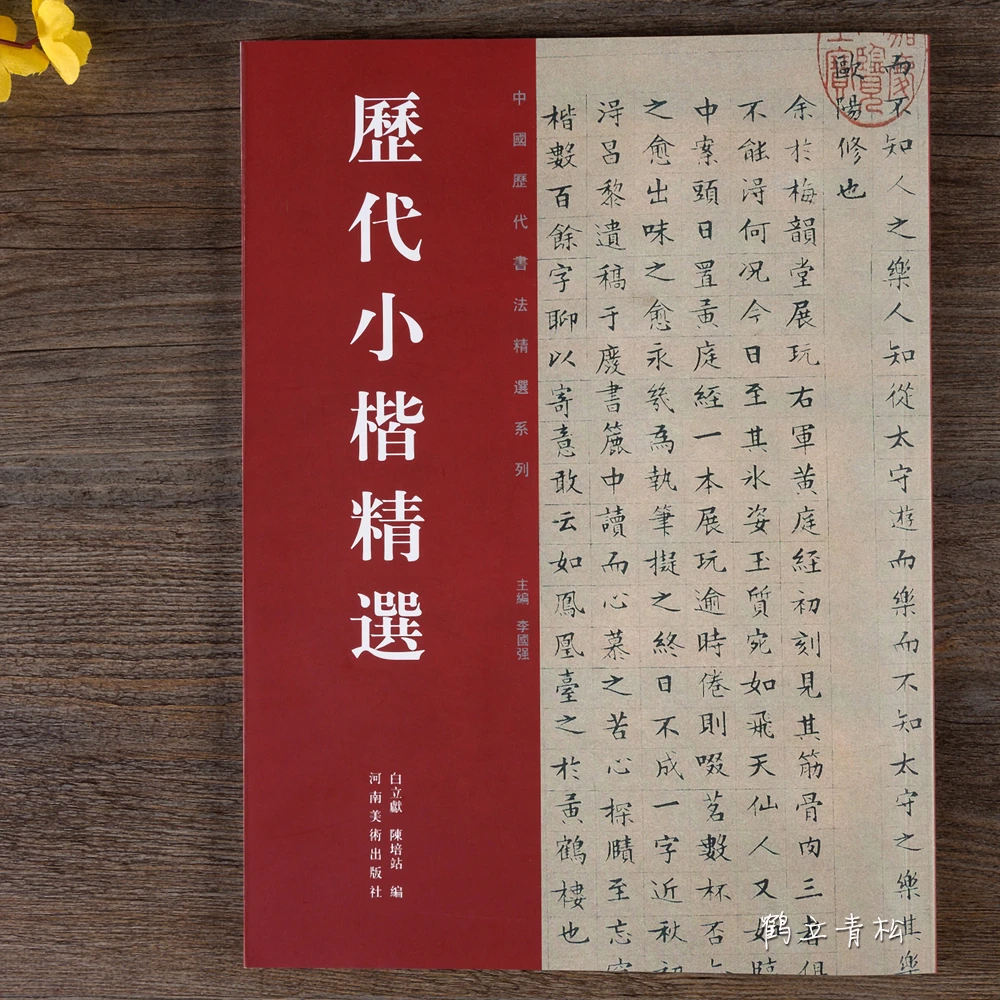 歷代小楷精選
中國歷代書法精選系列
主編 李國强
白立獻 陳培站 編
河南美術出版社
而不知人之樂人知從太守遊而樂而不知太守之樂其樂
歐陽修也
余於梅韻堂展玩右軍黃庭經初刻見其筋骨肉三者俱
不能淂何况今日至其氷姿玉質宛如飛天仙人又如臨
中案頭日置黃庭經一本展玩逾時倦則啜茗數杯否
之愈出味之愈永幾為執筆擬之終日不成一字近秋初
淂昌黎遺稿于廢書簏中讀而心慕之苦心探賾至忘
楷數百餘字聊以寄意敢云如鳳凰臺之於黃鶴樓也
鹤立青松